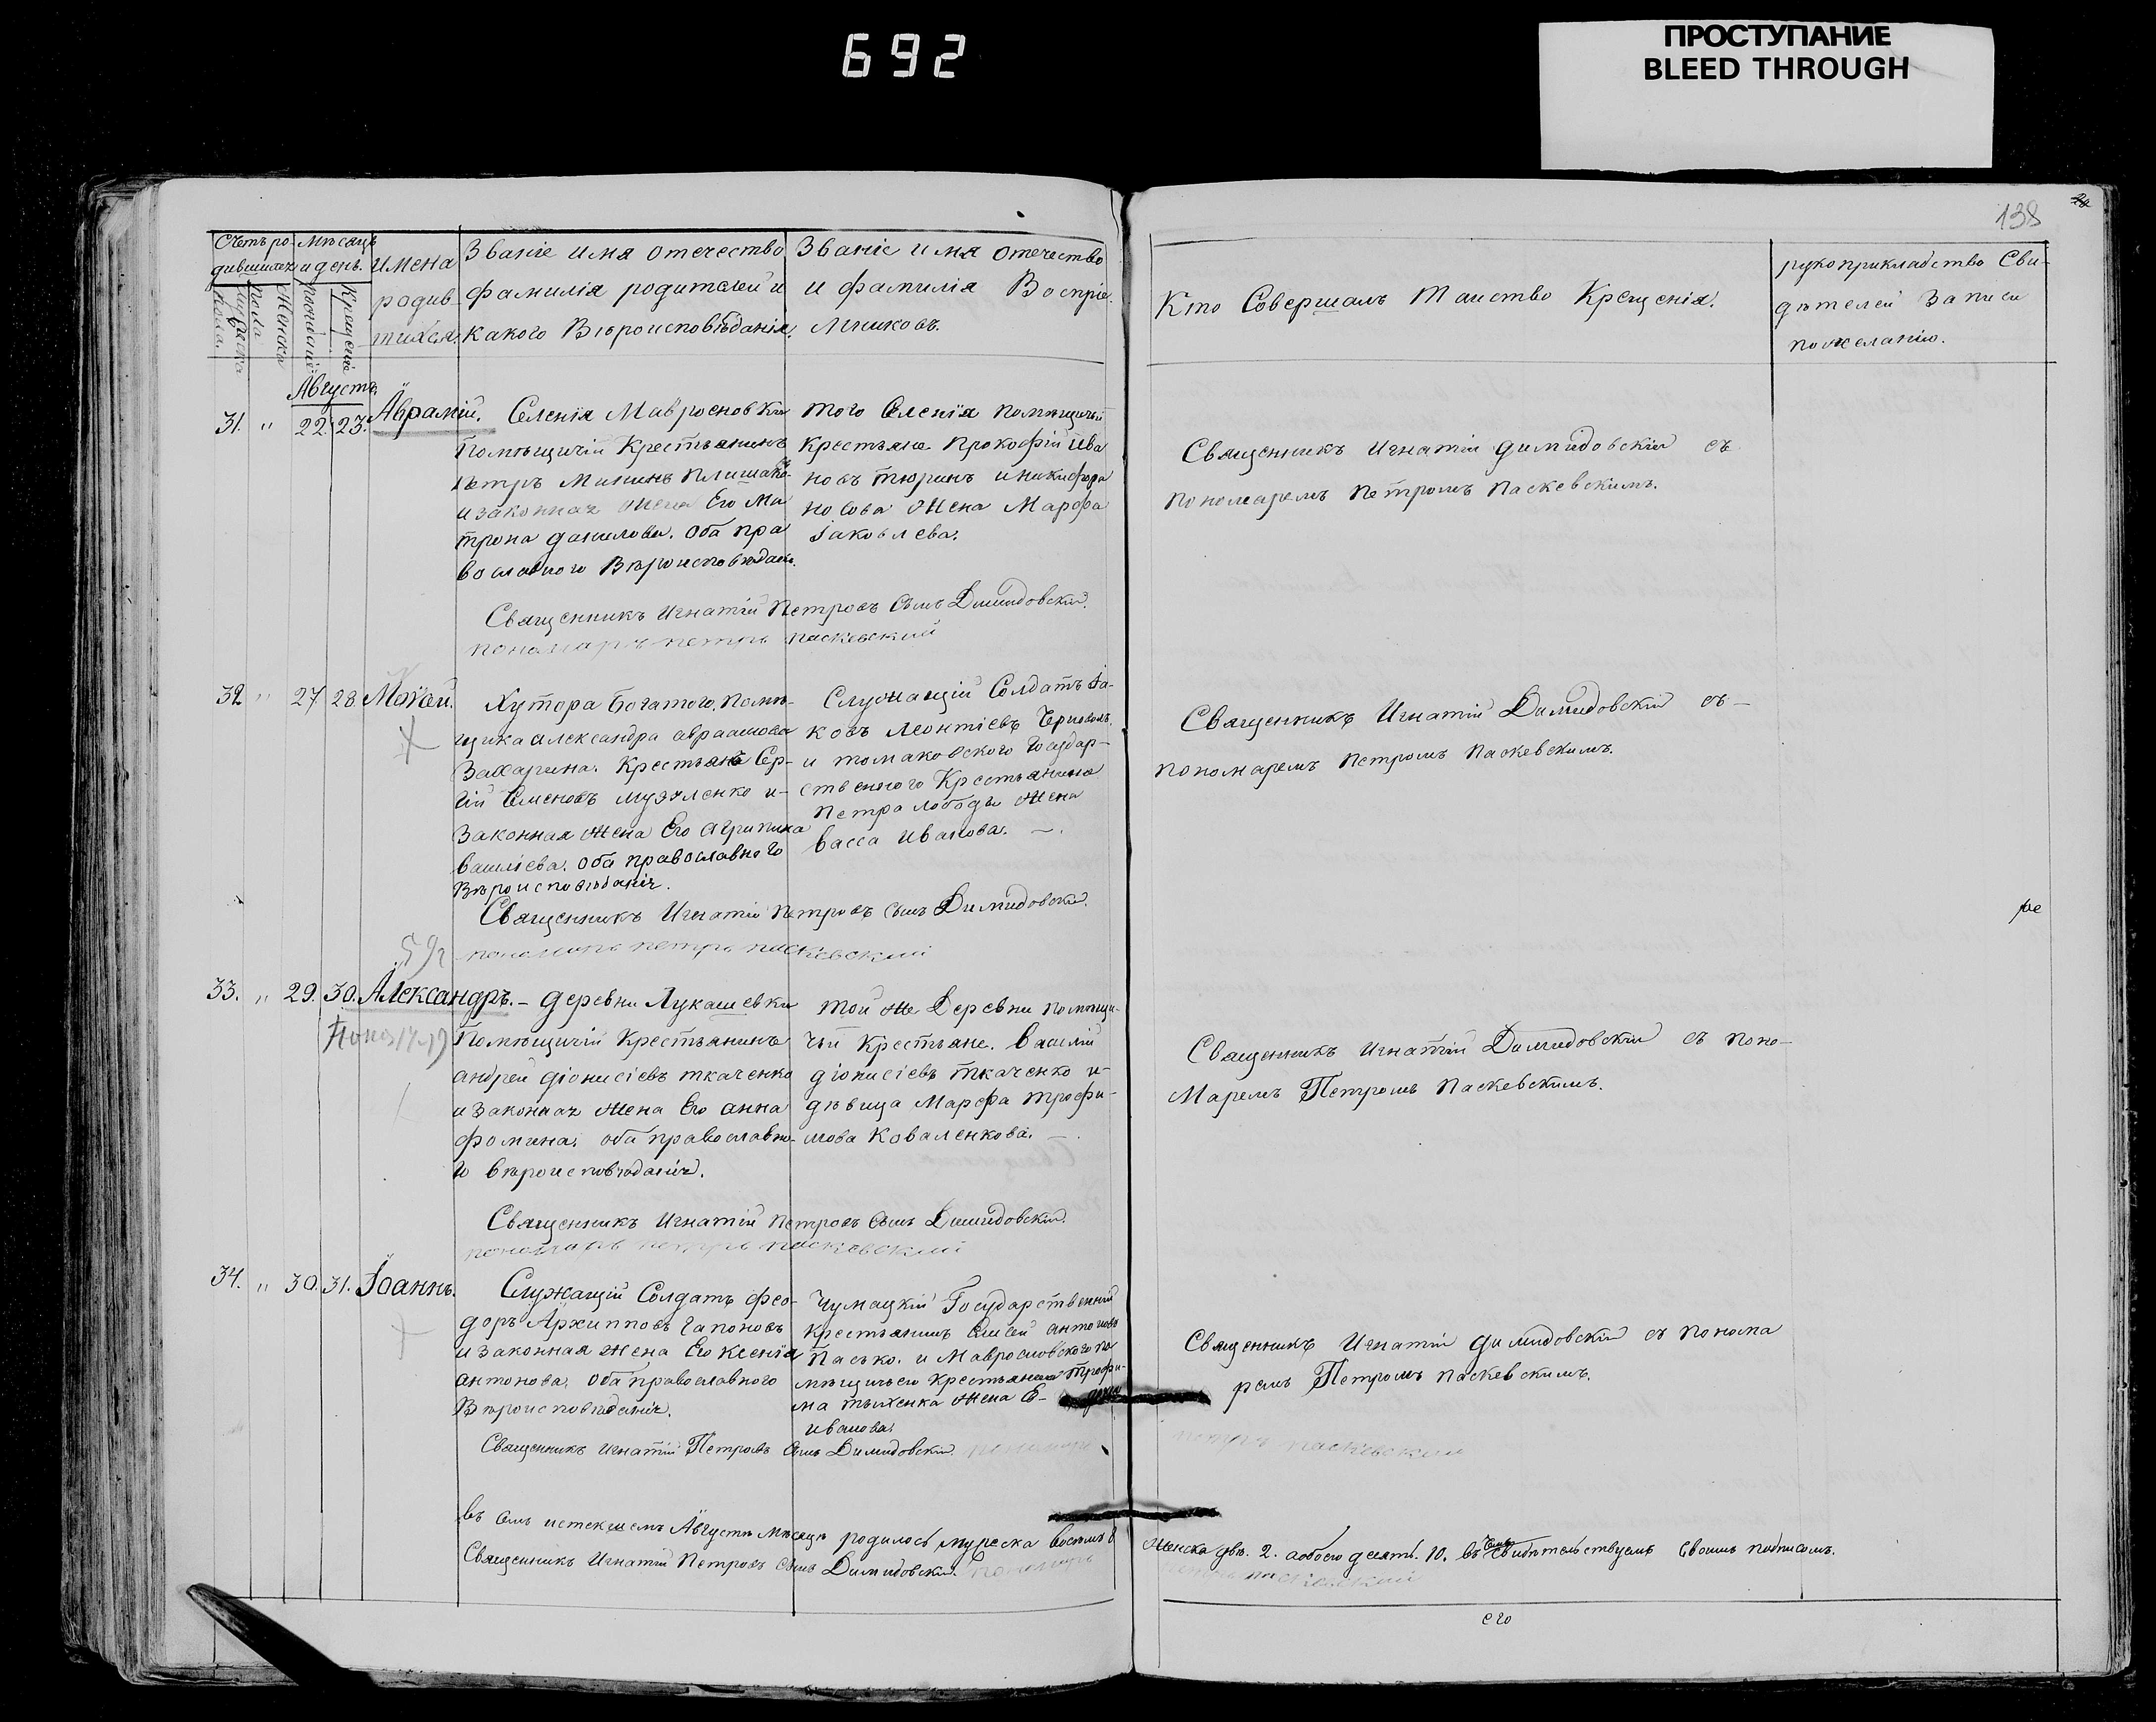 692
ПРОСТУПАНИЕ
BLEED THROUGH
138
Счетъ ро-
дившихся
Мужеска
пола.
Женска
пола
Мѣсяцъ
и день.
Рожденія
Крещенія
Имена
родив-
шихся.
Званіе имя отечество
фамилія родителей и
какого Вѣроисповѣданія.
Званіе имя отечество
и фамилія Воспріе-
мниковъ.
Кто Совершалъ Таинство Крещенія.
рукоприкладство Сви-
дѣтелей Записи
пожеланію.
Августъ.
31. " 22. 23. Аврамій.
Селенія Мавроеновки
Помѣщичій Крестьянинъ
Петръ Мининъ
и законная жена Его Ма
трона данилова. Оба пра
вославного Вѣроисповѣдан.
того Селенія помѣщичьи
Крестьяне Прокофій Ива
новъ Тюринъ и никифора
носова Жена Марфа
Іаковлева.
Священникъ Игнатій Димидовскій съ
пономаремъ Петромъ Паскевскимъ.
Священникъ Игнатій Петровъ сынъ Димидовскій.
пономарь петръ паскевский
32 " 27 28. Мокей.
Хутора Богатого. Помѣ-
щика александра авраамова
Захарина. Крестьянъ Сер-
гій Семеновъ и-
Законная Жена Его Агрипина
василіева. Оба православного
Вѣроисповѣданія.
Служащій Солдатъ Іа-
ковъ Леонтіевъ
и томаковского Государ-
ственного Крестьянина
Петра лободы Жена
васса Иванова. —.
Священникъ Игнатій Димидовскій съ —
пономаремъ Петромъ Паскевскимъ.
Священникъ Игнатій Петровъ сынъ Димидовскій.
пономарь петръ паскевский
33. " 29. 30. Александръ. –
деревни Лукашевки
Помѣщичій Крестьянинъ
андрей діонисіевъ ткаченко
и Законная Жена Его анна
фомина. оба православно-
го вѣроисповѣданія.
той же Деревни помѣщи-
чьи Крестьяне. василій
діонисіевъ Ткаченко и-
дѣвица Марфа трофи-
мова Коваленкова. —.
Священникъ Игнатій Димидовскій съ поно-
Маремъ Петромъ Паскевскимъ.
Священникъ Игнатій Петровъ сынъ Димидовскій.
пономарь петръ паскевский
34. " 30. 31. Іоаннъ.
Служащій Солдатъ фео-
доръ Архиповъ Гапоновъ
и Законная жена Его Ксенія
антонова. Оба православного
Вѣроисповѣданія.
Чумацкій Государственній
крестьянинъ Елисей антоновъ
Пасько. и Мавроеновского по
мѣщичьего Крестьянина Трофи-
ма Жена Е-
иванова.
Священникъ Игнатій Димидовскій съ понома
ремъ Петромъ Паскевскимъ.
Священникъ Игнатій Петровъ сынъ Димидовскій. пономарь
петръ паскевский
въ семъ истекшемъ Августѣ Мѣсяцѣ родилось мужеска восемь 8
Женска двѣ. 2. а обоего десять. 10. въ чемъ свидѣтельствуемъ Своимъ подписомъ.
Священникъ Игнатій Петровъ сынъ Димидовскій. пономарь
петръ паскевский
его